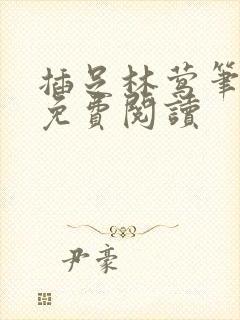 插足林莺筆
免費閱讀
尹豪